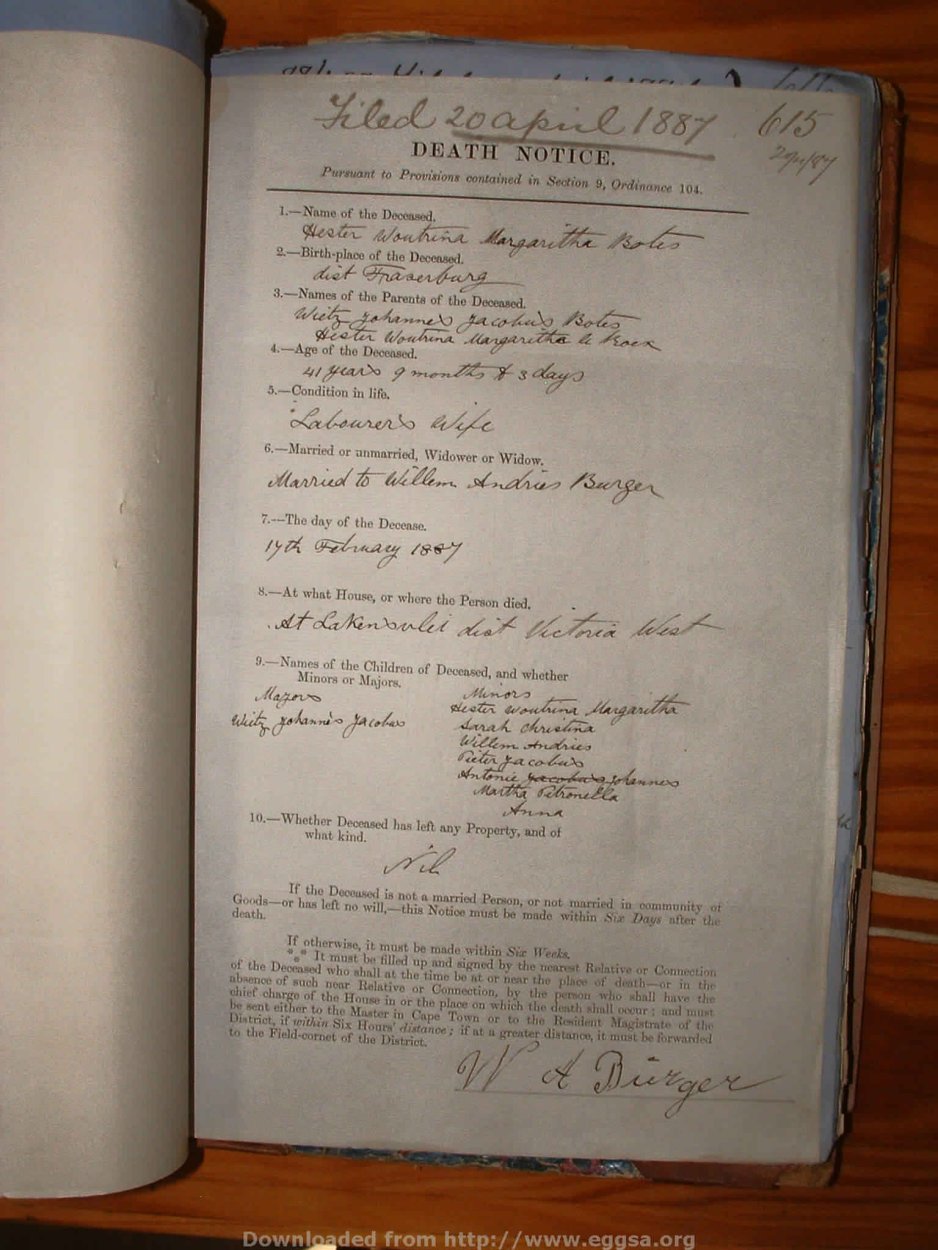 Filed 20 april 1887 615
DEATH NOTICE.
Pursuant to Provisions contained in Section 9, Ordinance 104.
1.—Name of the Deceased.
Hester Woutrina Margaritha Botes
2.—Birth-place of the Deceased.
dist Fraserburg
3.—Names of the Parents of the Deceased.
Wietz Johannes Jacobus Botes
Hester Woutrina Margaritha le Roex
4.—Age of the Deceased.
41 years 9 months & 3 days
5.—Condition in life.
Labourer's Wife
6.—Married or unmarried, Widower or Widow.
Married to Willem Andries Burger
7.—The day of the Decease.
17th February 1887
8.—At what House, or where the Person died.
At Lakensvlei dist Victoria West
9.—Names of the Children of Deceased, and whether
Minors or Majors.
Majors Minors
Wietz Johannes Jacobus Hester Woutrina Margaritha
Sarah Christina
Willem Andries
Pieter Jacobus
Antonie Jacobus Johannes
Martha Petronella
Anna
10.—Whether Deceased has left any Property, and of
what kind.
Nil
If the Deceased is not a married Person, or not married in community of
Goods—or has left no will,—this Notice must be made within Six Days after the
death.
If otherwise, it must be made within Six Weeks.
*** It must be filled up and signed by the nearest Relative or Connection
of the Deceased who shall at the time be at or near the place of death—or in the
absence of such near Relative or Connection, by the person who shall have the
chief charge of the House in or the place on which the death shall occur; and must
be sent either to the Master in Cape Town or to the Resident Magistrate of the
District, if within Six Hours' distance; if at a greater distance, it must be forwarded
to the Field-cornet of the District.
W A Burger
Downloaded from http://www.eggsa.org